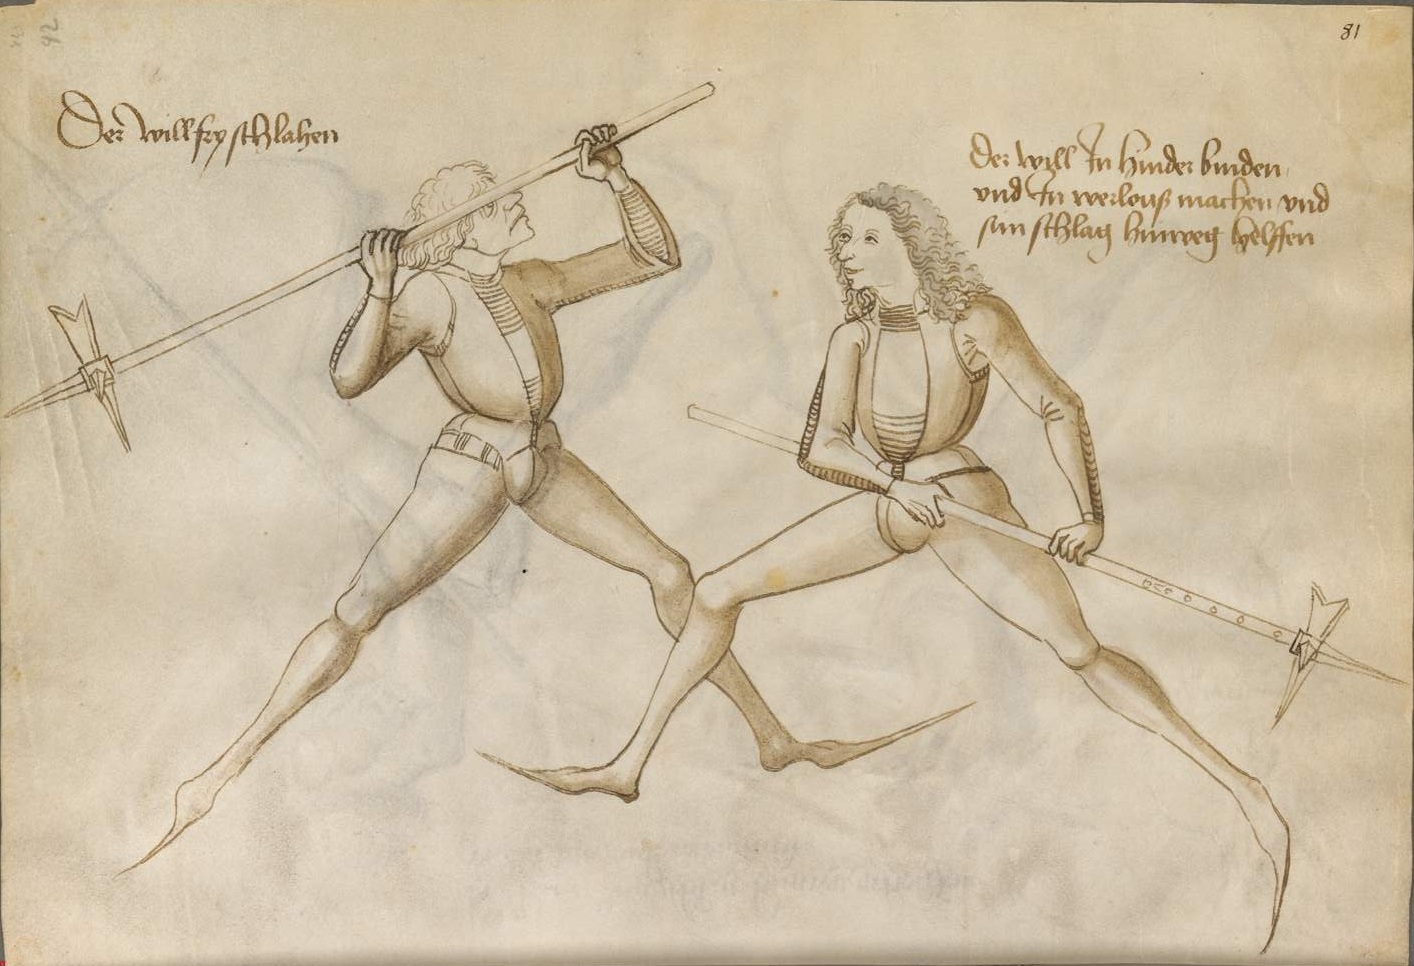 92
81
Der will fry schlahen
Der will In hinder binden
vnd In werlouß machen vnd
sin schlag hinweg helffen